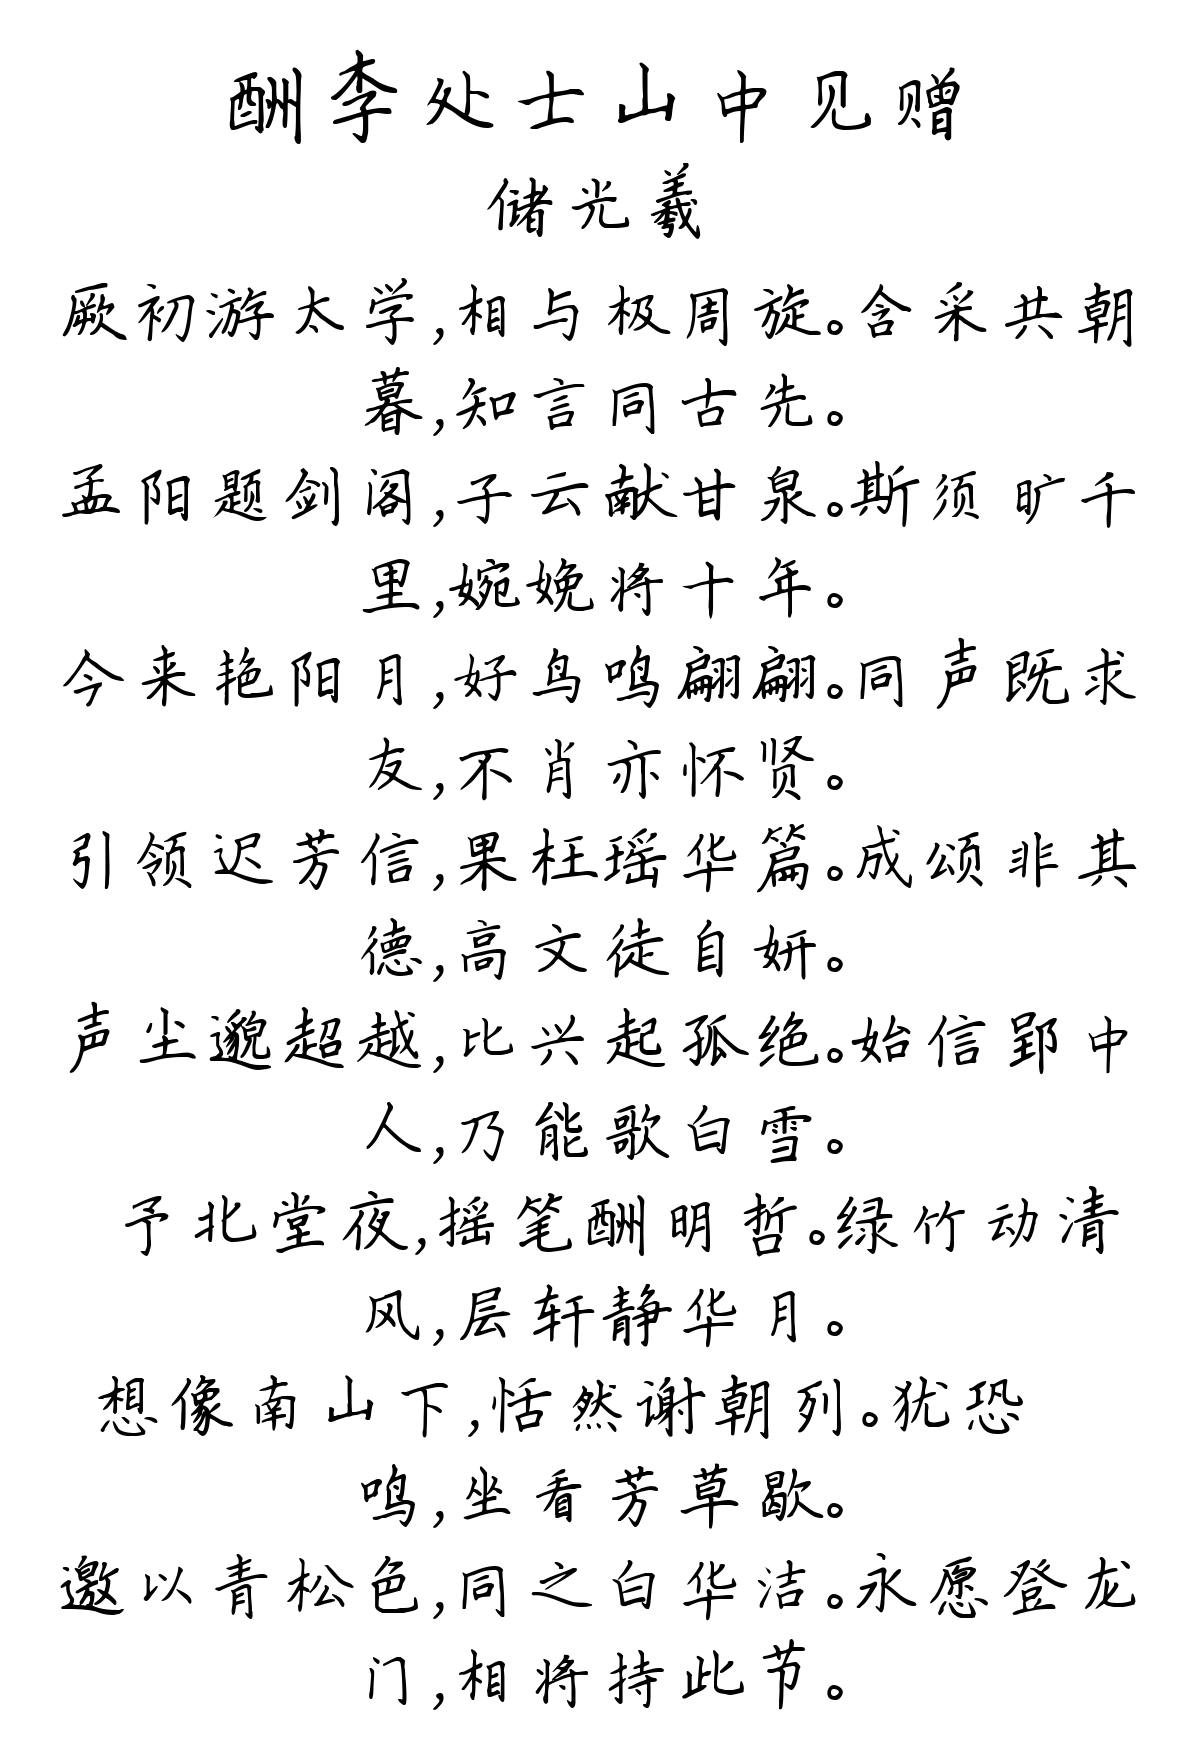 酬李处士山中见赠
储光羲
厥初游太学,相与极周旋。含采共朝
暮,知言同古先。
孟阳题剑阁,子云献甘泉。斯须旷千
里,婉娩将十年。
今来艳阳月,好鸟鸣翩翩。同声既求
友,不肖亦怀贤。
引领迟芳信,果枉瑶华篇。成颂非其
德,高文徒自妍。
声尘邈超越,比兴起孤绝。始信郢中
人,乃能歌白雪。
予北堂夜,摇笔酬明哲。绿竹动清
风,层轩静华月。
想像南山下,恬然谢朝列。犹恐
鸣,坐看芳草歇。
邀以青松色,同之白华洁。永愿登龙
门,相将持此节。